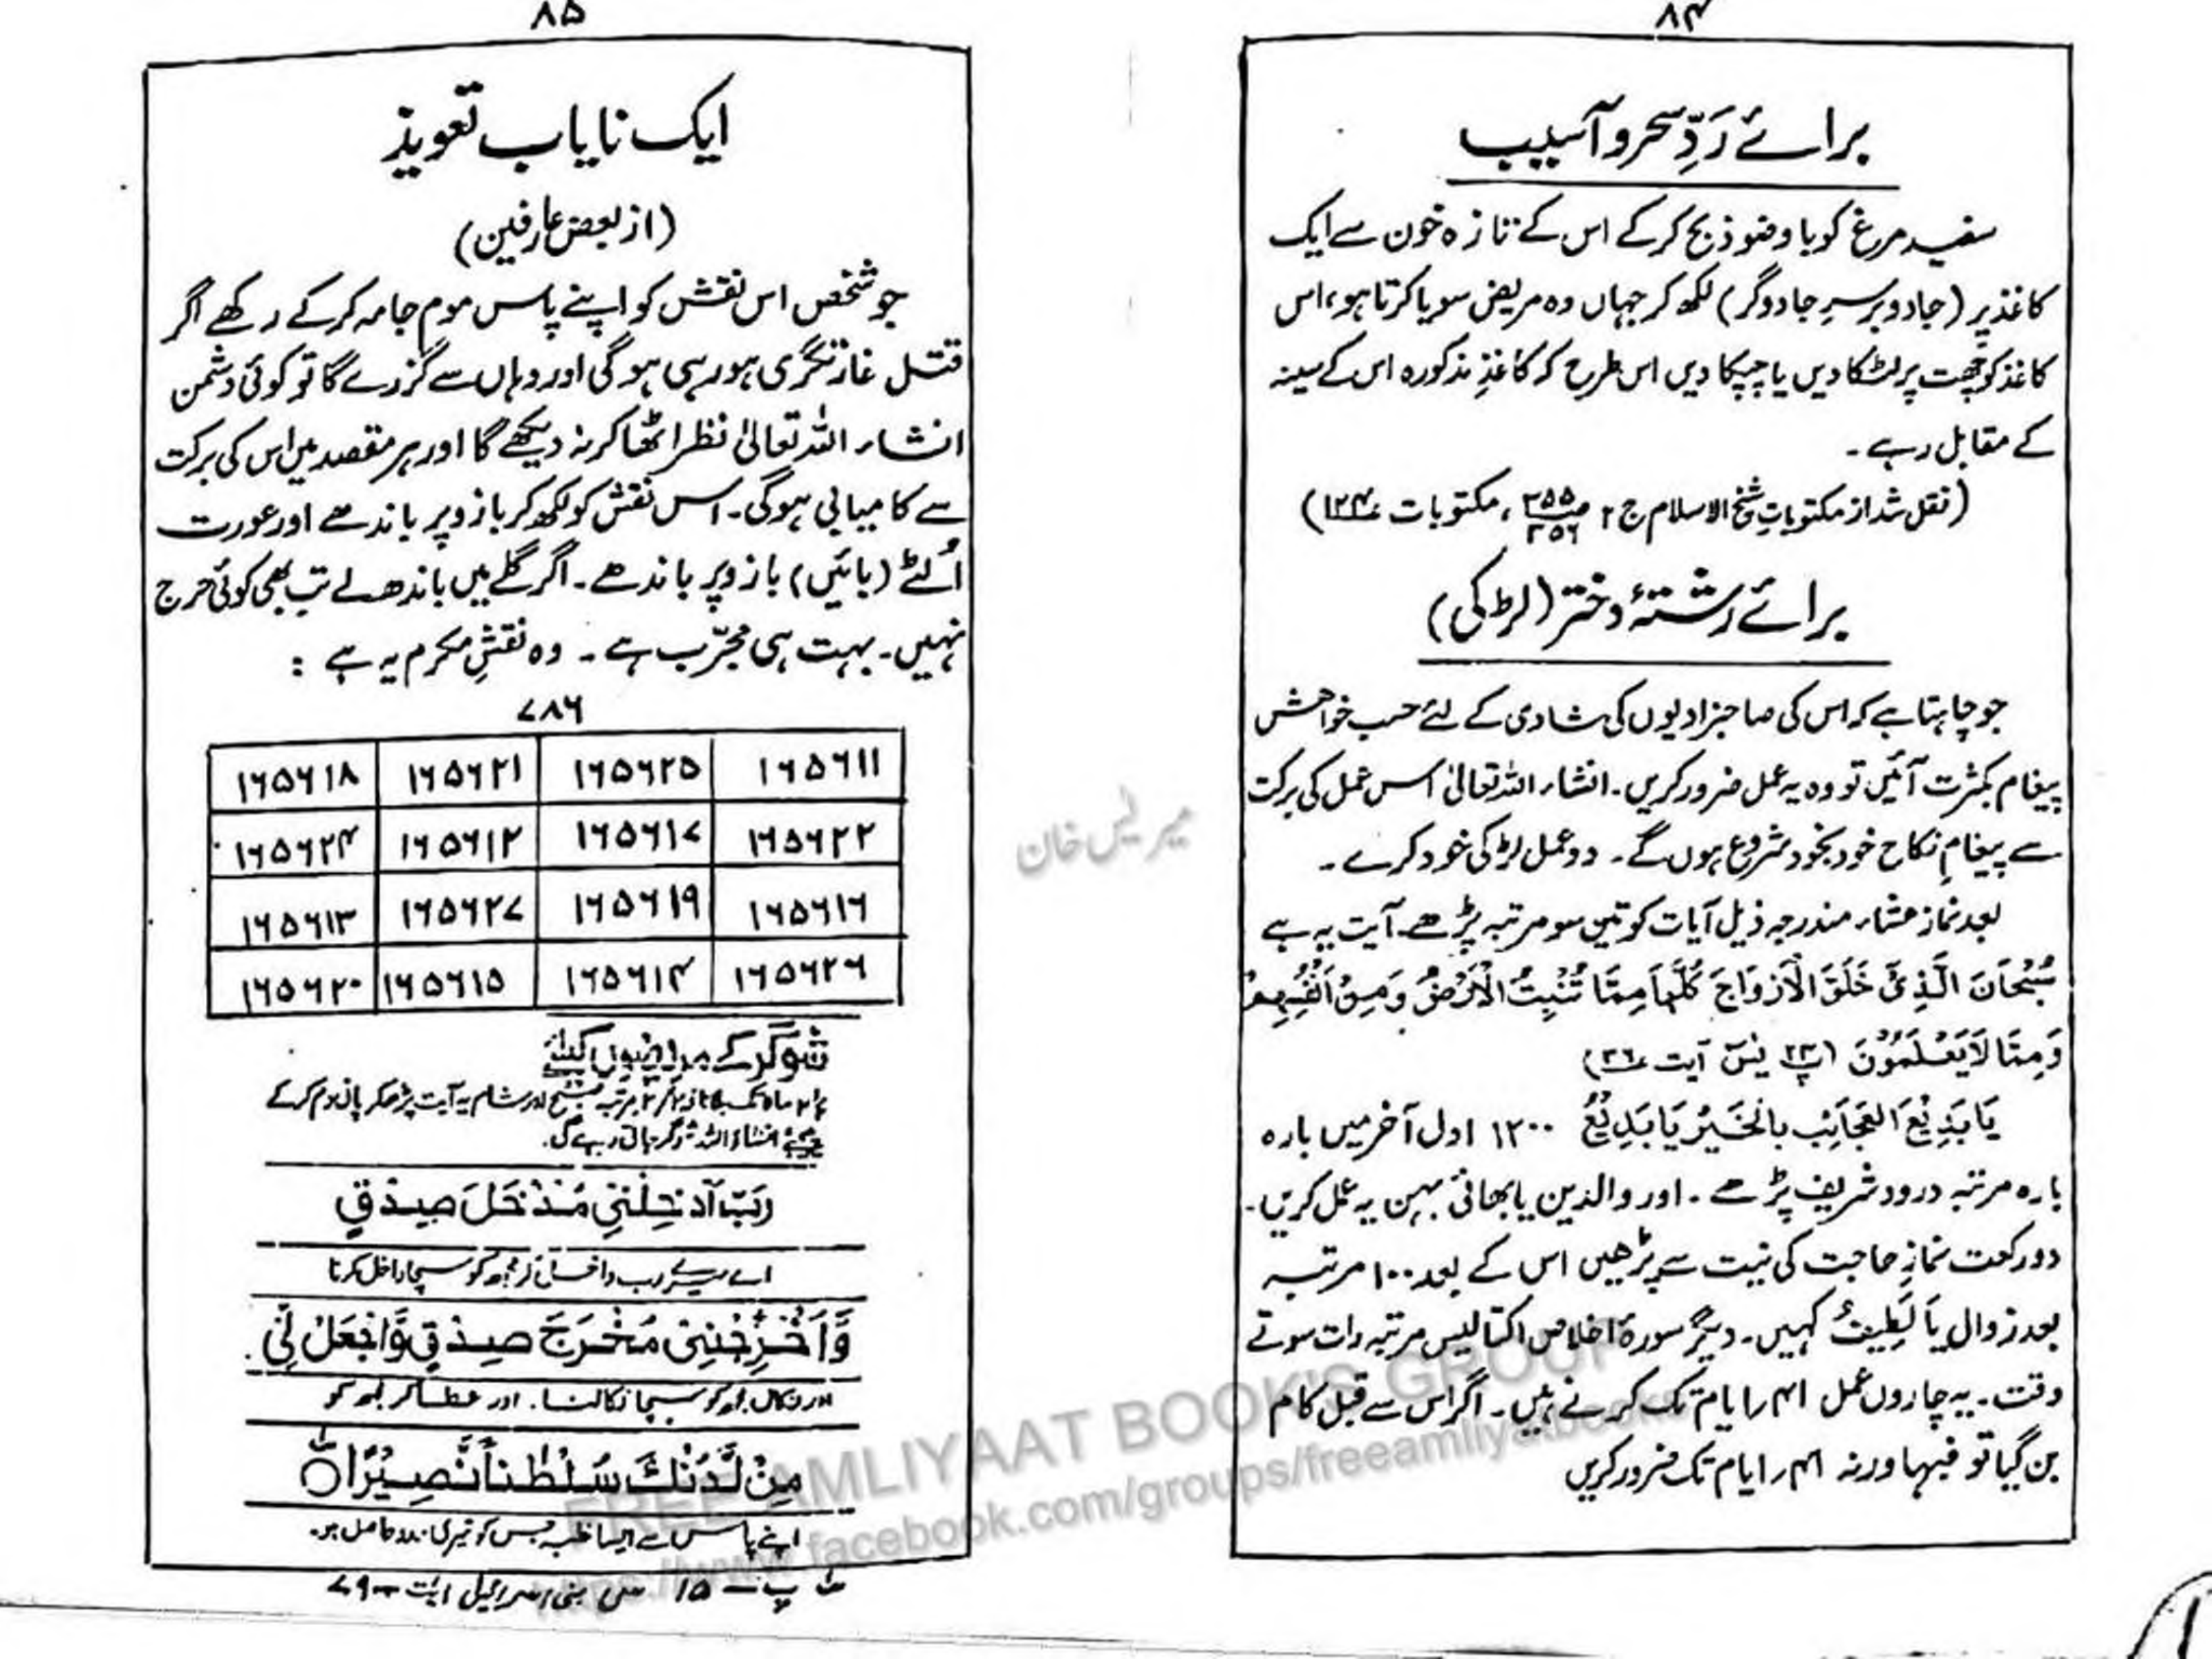 ۸۴
برائے رَدِّ سحر و آسیب
سفید مرغ کو با وضو ذبح کرکے اس کے تازہ خون سے ایک
کاغذ پر (جادو برسرِ جادوگر) لکھ کر جہاں وہ مریض سویا کرتا ہو، اس
کاغذ کو چھت پر لٹکا دیں یا چپکا دیں اس طرح کہ کاغذِ مذکورہ اس کے سینہ
کے مقابل رہے۔
(نقل شد از مکتوباتِ شیخ الاسلام ج ۲ ص ۲۵۵ ۲۵۶، مکتوبات ۱۲۴)
برائے رشتۂ دختر (لڑکی)
جو چاہتا ہے کہ اس کی صاحبزادیوں کی شادی کے لئے حسب خواہش
پیغام بکثرت آئیں تو وہ یہ عمل ضرور کریں۔ انشاء اللہ تعالیٰ اس عمل کی برکت
سے پیغامِ نکاح خود بخود شروع ہوں گے۔ دو عمل لڑکی خود کرے۔
بعد نماز عشاء مندرجہ ذیل آیات کو تین سو مرتبہ پڑھے۔ آیت یہ ہے
سُبْحَانَ الَّذِیْ خَلَقَ الْاَزْوَاجَ کُلَّهَا مِمَّا تُنْبِتُ الْاَرْضُ وَمِنْ اَنْفُسِهِمْ
وَمِمَّا لَا یَعْلَمُوْنَ (پ ۲۳ یٰسٓ آیت ۳۶)
یَا بَدِیْعَ الْعَجَائِبِ بِالْخَیْرِ یَا بَدِیْعُ ۱۲۰۰ اول آخر میں بارہ
بارہ مرتبہ درود شریف پڑھے۔ اور والدین یا بھائی بہن یہ عمل کریں۔
دو رکعت نمازِ حاجت کی نیت سے پڑھیں اس کے بعد ۱۰۰ مرتبہ
بعد زوال یَا لَطِیْفُ کہیں۔ دیگر سورۂ اخلاص اکتالیس مرتبہ رات سوتے
وقت۔ یہ چاروں عمل ۴۱ ایام تک کرنے ہیں۔ اگر اس سے قبل کام
بن گیا تو فبہا ورنہ ۴۱ ایام تک ضرور کریں
۸۵
ایک نایاب تعویذ
(از بعض عارفین)
جو شخص اس نقش کو اپنے پاس موم جامہ کرکے رکھے اگر
قتل غارتگری ہو رہی ہوگی اور وہاں سے گزرے گا تو کوئی دشمن
انشاء اللہ تعالیٰ نظر اٹھا کر نہ دیکھے گا اور ہر مقصد میں اس کی برکت
سے کامیابی ہوگی۔ اس نقش کو لکھ کر بازو پر باندھے اور عورت
اُلٹے (بائیں) بازو پر باندھے۔ اگر گلے میں باندھ لے تب بھی کوئی حرج
نہیں۔ بہت ہی مجرّب ہے۔ وہ نقشِ مکرم یہ ہے :
۷۸۶
۱۶۵۶۱۱ ۱۶۵۶۲۵ ۱۶۵۶۲۱ ۱۶۵۶۱۸
۱۶۵۶۲۲ ۱۶۵۶۱۷ ۱۶۵۶۱۲ ۱۶۵۶۲۴
۱۶۵۶۱۶ ۱۶۵۶۱۹ ۱۶۵۶۲۷ ۱۶۵۶۱۳
۱۶۵۶۲۶ ۱۶۵۶۱۴ ۱۶۵۶۱۵ ۱۶۵۶۲۰
شوگر کے مریضوں کیلئے
ماہ تک مرتبہ صبح اور شام یہ آیت پڑھکر پانی پر دم کرکے
انشاء اللہ شوگر جاتی رہے گی۔
رَبِّ اَدْخِلْنِیْ مُدْخَلَ صِدْقٍ
اے میرے رب داخل کر مجھ کو سچا داخل کرنا
وَّاَخْرِجْنِیْ مُخْرَجَ صِدْقٍ وَّاجْعَلْ لِّیْ
اور نکال مجھ کو سچا نکالنا۔ اور عطا کر مجھ کو
مِنْ لَّدُنْكَ سُلْطٰنًا نَّصِیْرًا
اپنے پاس سے ایسا غلبہ جس کو تیری مدد حاصل ہو۔
پ ۱۵ س بنی اسرائیل آیت
میر لیس خان
FREE AMLIYAAT BOOK'S GROUP
https://www.facebook.com/groups/freeamliyatbooks